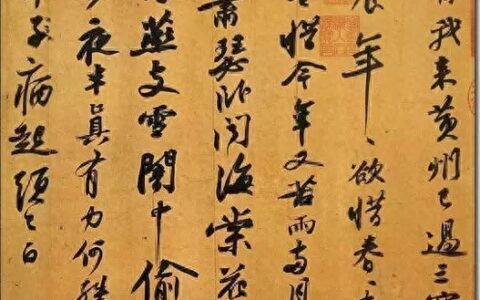 自我來黄州已過三寒
食年〻欲惜春〻
容惜今年又苦雨兩月
蕭瑟卧聞海棠花
燕支雪闇中偷
夜半真有力何殊
年子病起須已白